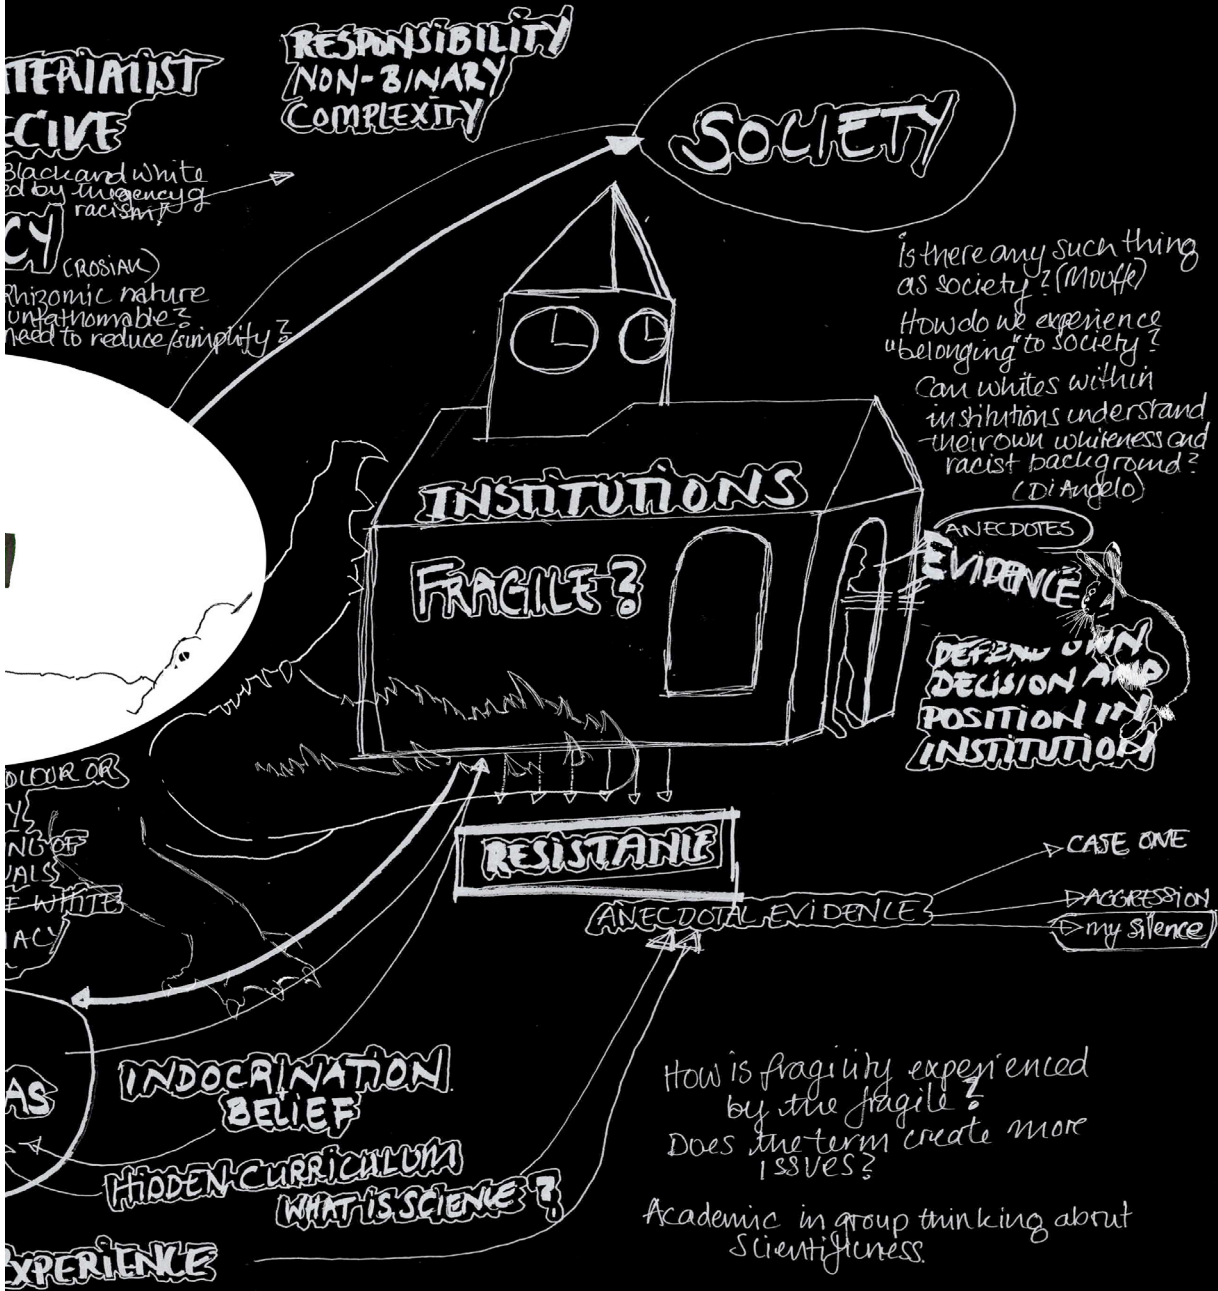 TERIALIST
ECIVE
Black and White
ed by inegency of
racism!
CY
(ROSIAK)
Rhizomic nature
unfathomable?
need to reduce/simplify?
RESPONSIBILITY
NON-BINARY
COMPLEXITY
SOCIETY
Is there any such thing
as society? (Mouffe)
How do we experience
"belonging" to society?
Can whites within
institutions understand
their own whiteness and
racist background?
(DiAngelo)
INSTITUTIONS
FRAGILE?
ANECDOTES
EVIDENCE
DEFEND OWN
DECISION AND
POSITION IN
INSTITUTION
OLOUR OR
Y?
NG OF
UALS
F WHITE
ACY
RESISTANCE
ANECDOTAL EVIDENCE
CASE ONE
AGGRESSION
my silence
AS
INDOCRINATION
BELIEF
HIDDEN CURRICULUM
WHAT IS SCIENCE?
EXPERIENCE
How is fragility experienced
by the fragile?
Does the term create more
issues?
Academic in group thinking about
Scientificness.